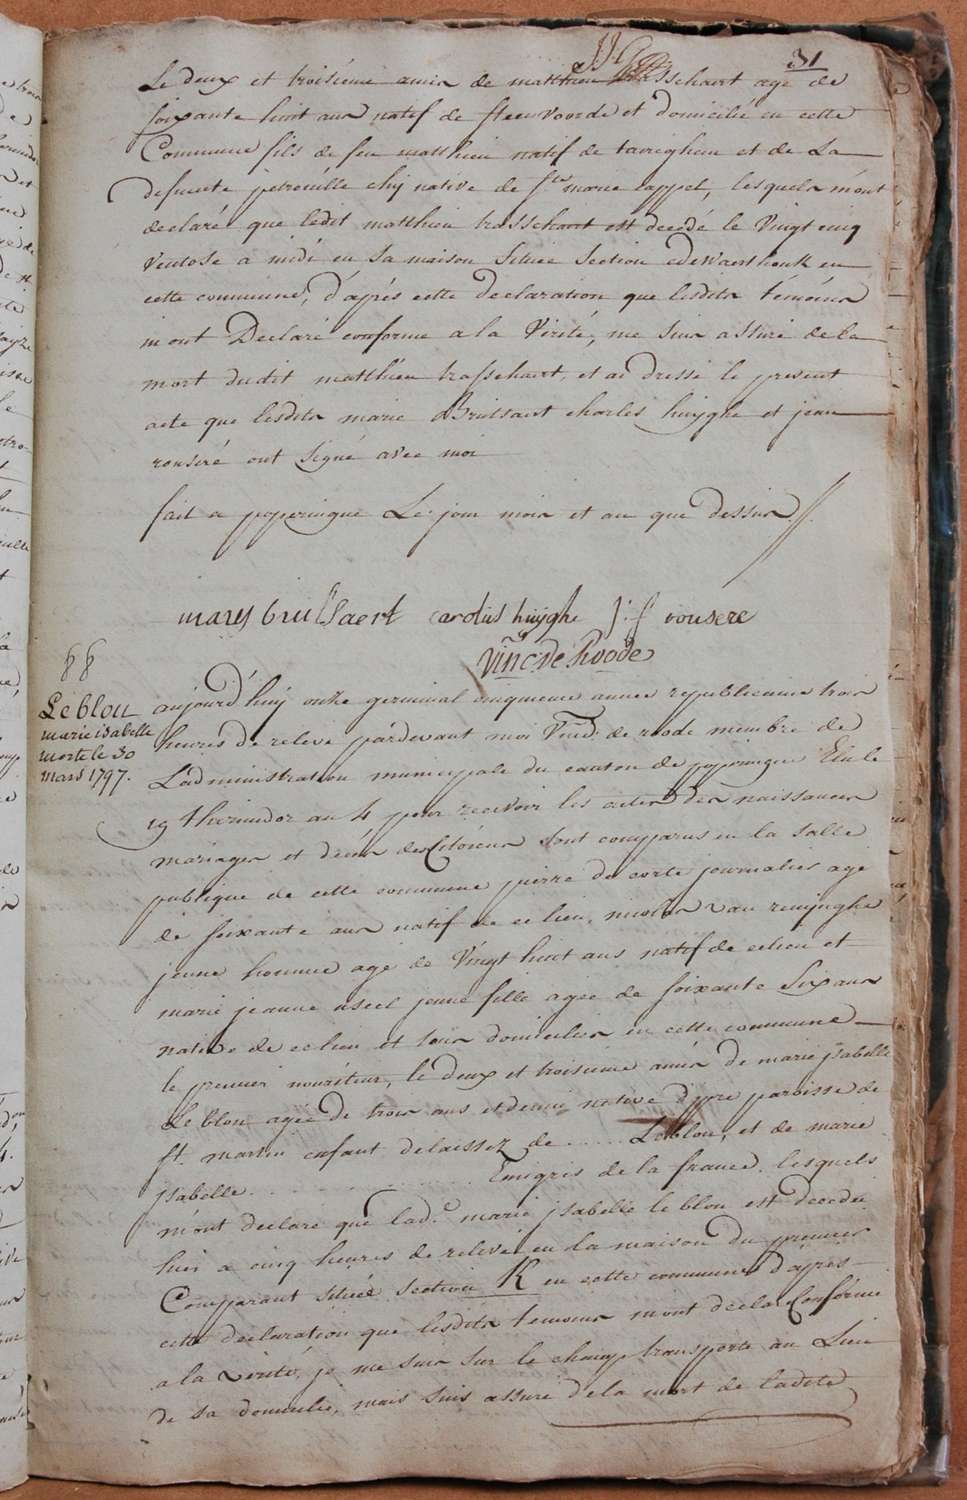 31
Le deux et troisieme amis de matthieu trasschaert age de
soixante huit ans natif de steenvoorde et domicilié en cette
Commune fils de feu matthieu natif de taveghem et de La
defuncte petronille chij native de ste marie cappel, lesquels m'ont
declaré que ledit matthieu trasschaert est decedé le Vingt cinq
Ventose a midi en sa maison située section edewaerthouk en
cette commune, d'après cette declaration que lesdits témoins
m'ont Declaré conforme a la Verité, me suis assuré de la
mort dudit matthieu trasschaert, et ai dressé le present
acte que lesdits marie Brutsaert charles huyghe et jean
rouseré ont signé avec moi
fait a poperingue Le jour mois et an que dessus
marij brutsaert carolus huijghe j: f rousere
Vinc: de Roode
88
Leblou
marie isabelle
morte le 30
mars 1797.
aujourd'huij onze germinal cinquieme année republicaine trois
heures de relevé pardevant moi Vinct: de roode membre de
L'administration municipale du canton de poperingue Elu le
19 thermidor an 4 pour recevoir les actes des naissances
mariages et décès des Citoiens sont comparus en la salle
publique de cette commune pierre de corte journalier agé
de soixante ans natif de ce lieu, nicolas van renijnghe
jeune homme agé de Vingt huit ans natif de ce lieu et
marie jeanne useel jeune fille agée de soixante six ans
native de ce lieu et tous domiciliés en cette commune
le premier nouriteur, le deux et troisieme amis de marie ysabelle
Le blou agée de trois ans et demi native d'ypre paroisse de
st. martin enfant delaissez de ..... Leblou, et de marie
ysabelle .............. Emigrés de la france. lesquels
m'ont declaré que lade. marie ysabelle le blou est decedée
hier a cinq heures de relevé en la maison du premier
Comparant située section K en cette commune d'après
cette declaration que lesdits temoins m'ont declaré Conforme
a la verité, je me suis sur le champ transporté au Lieu
de sa domicilie, mais suis assuré de la mort de ladite